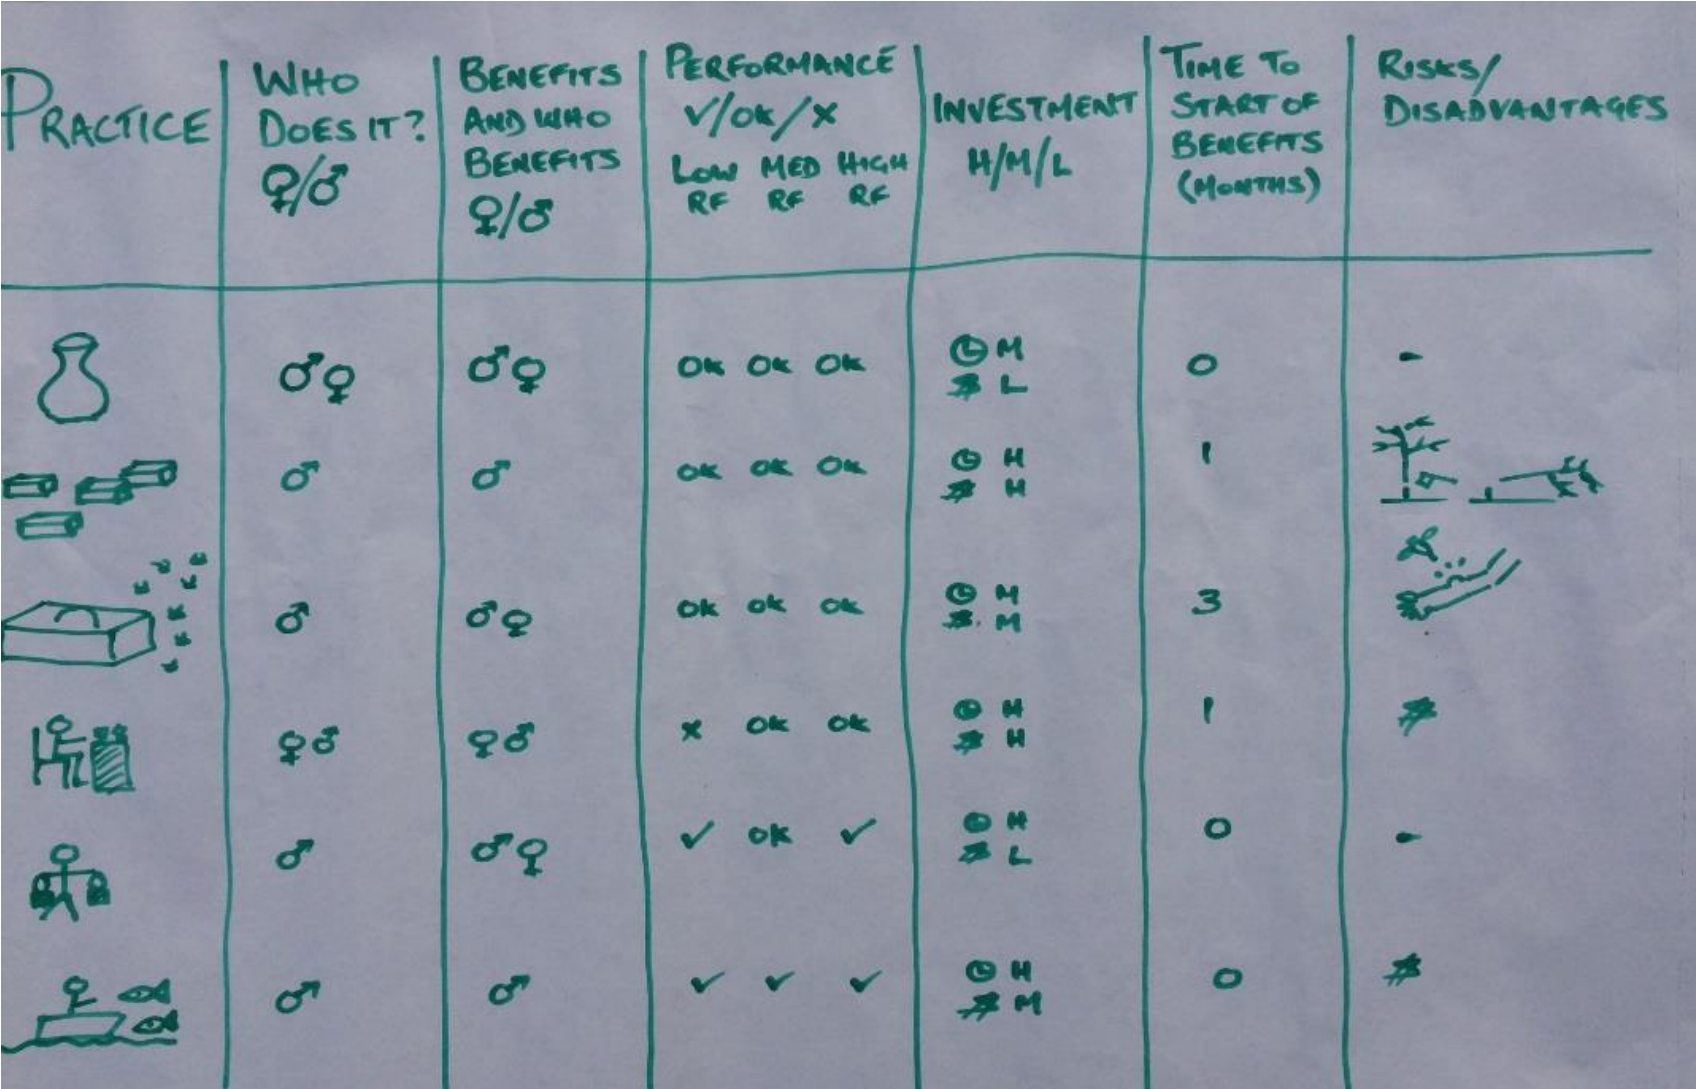 PRACTICE
WHO
DOES IT?
♀/♂
BENEFITS
AND WHO
BENEFITS
♀/♂
PERFORMANCE
✓/OK/×
LOW MED HIGH
RF RF RF
INVESTMENT
H/M/L
TIME TO
START OF
BENEFITS
(MONTHS)
RISKS/
DISADVANTAGES
♂♀ ♂♀ OK OK OK M 0 -
L
♂ ♂ OK OK OK H 1
H
♂ ♂♀ OK OK OK M 3
M
♀♂ ♀♂ × OK OK H 1
H
♂ ♂♀ ✓ OK ✓ H 0 -
L
♂ ♂ ✓ ✓ ✓ H 0
M